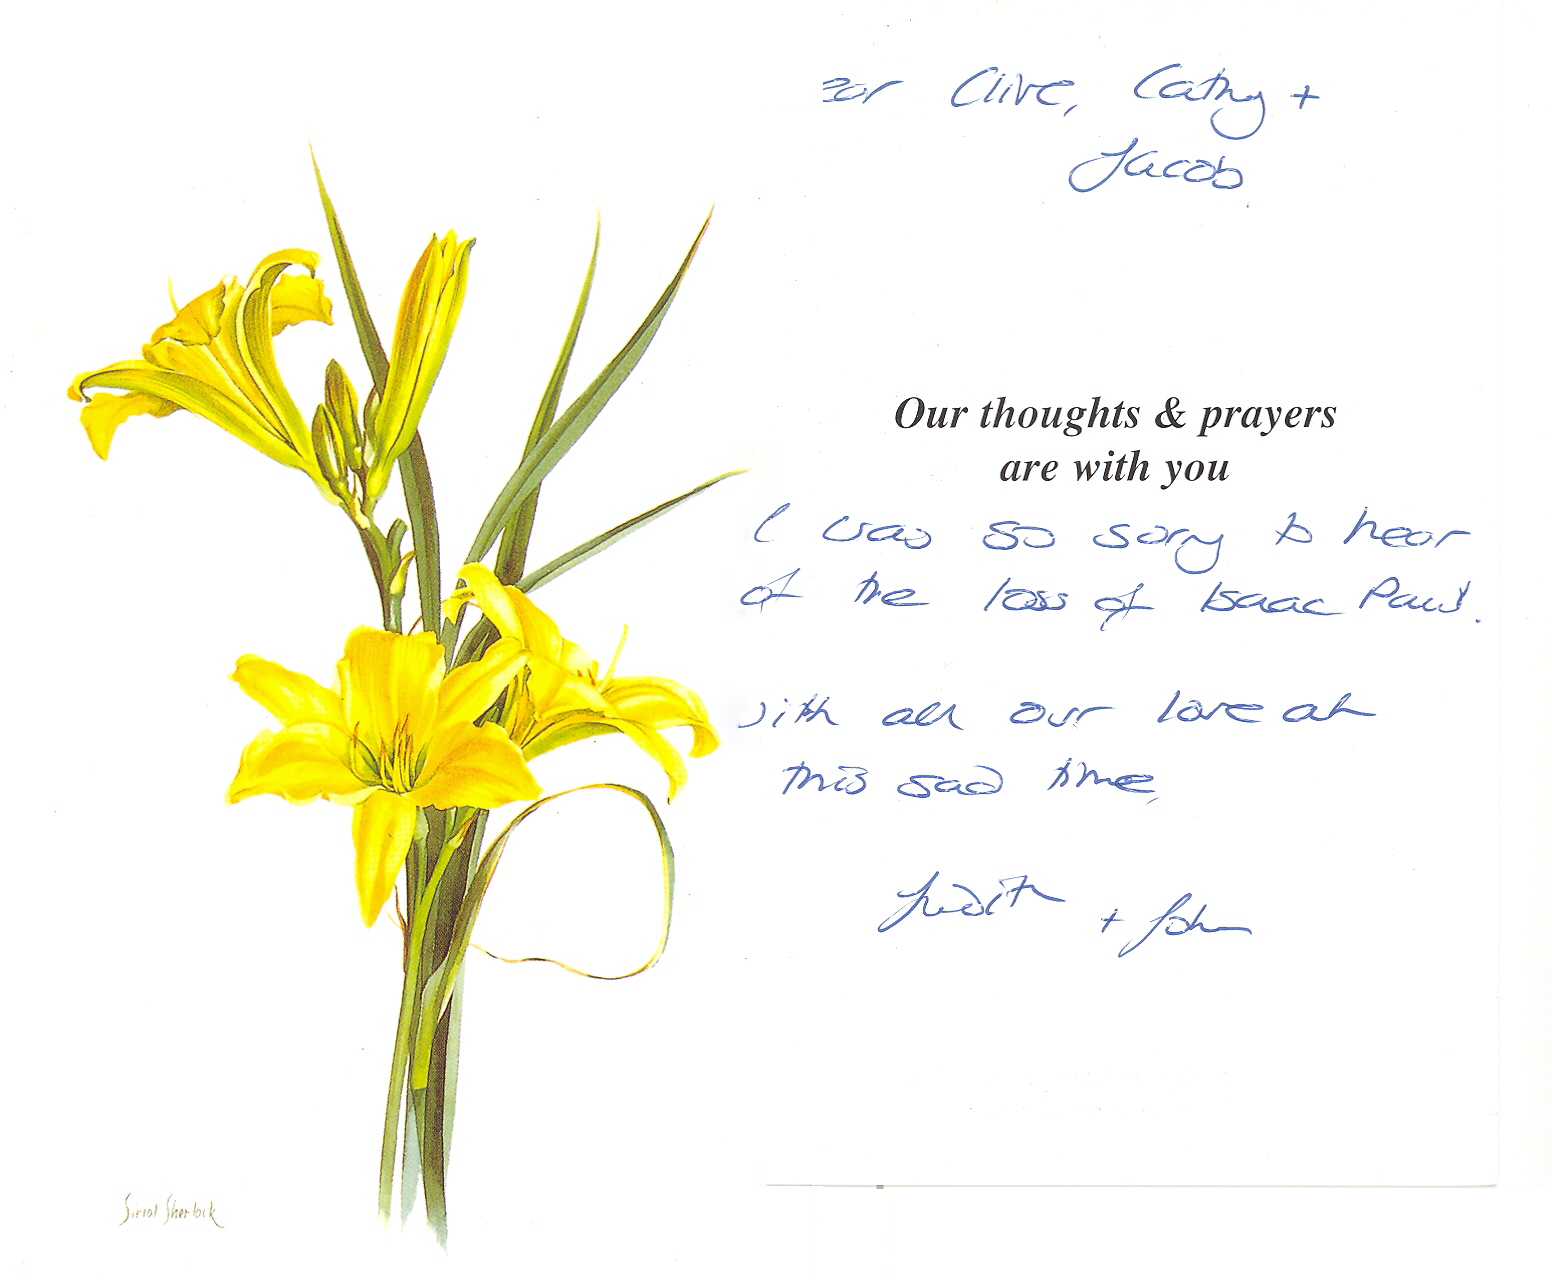 ear Clive, Cathy +
Jacob
Our thoughts & prayers
are with you
I was so sorry to hear
of the loss of Isaac Paul.
with all our love at
this sad time,
Judith + John
Siriol Sherlock